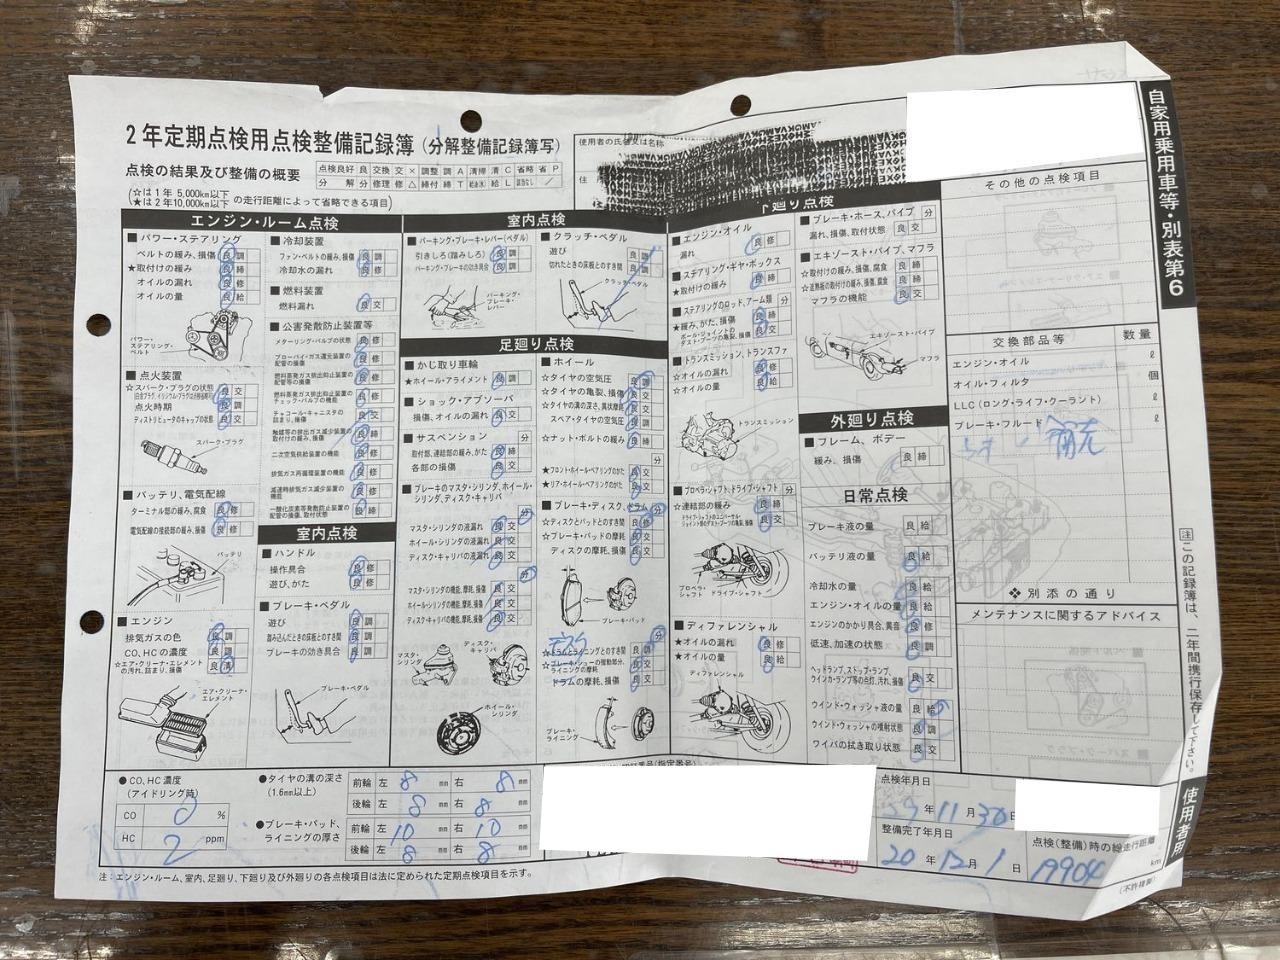 自家用乗用車等・別表第6
2年定期点検用点検整備記録簿(分解整備記録簿写)
点検の結果及び整備の概要
点検良好 良 交換 交 × 調整 調 A 清掃 清 C 省略 省 P
分解 分 修理 修 △ 締付 締 T 給油(水) 給 L 該当なし ／
(☆は1年 5,000km以下
★は2年10,000km以下 の走行距離によって省略できる項目)
使用者の氏名又は名称
住
エンジン・ルーム点検
■パワー・ステアリング
ベルトの緩み、損傷 良 調
★取付けの緩み 良 締
オイルの漏れ 良 修
オイルの量 良 給
パワー・ステアリング・ベルト
■点火装置
☆スパーク・プラグの状態 良 交
点火時期 良 調
ディストリビュータのキャップの状態 良 交
スパーク・プラグ
■バッテリ、電気配線
ターミナル部の緩み、腐食 良 修
電気配線の接続部の緩み、損傷 良 修
バッテリ
■エンジン
排気ガスの色 良 調
CO、HCの濃度 良 調
☆エア・クリーナ・エレメントの汚れ、詰まり、損傷 良 清
エア・クリーナ・エレメント
■冷却装置
ファン・ベルトの緩み、損傷 良 調
冷却水の漏れ 良 修
■燃料装置
燃料漏れ 良 交
■公害発散防止装置等
メターリング・バルブの状態 良 修
ブローバイ・ガス還元装置の配管の損傷 良 修
燃料蒸発ガス排出抑止装置の配管等の損傷 良 修
燃料蒸発ガス排出抑止装置のチェック・バルブの機能 良 交
チャコール・キャニスタの詰まり、損傷 良 交
触媒等の排出ガス減少装置の取付けの緩み、損傷 良 締
二次空気供給装置の機能 良 修
排気ガス再循環装置の機能 良 修
減速時排気ガス減少装置の機能 良 修
一酸化炭素等発散防止装置の配管の損傷、取付状態 良 修
室内点検
■ハンドル
操作具合 良 修
遊び、がた 良 修
■ブレーキ・ペダル
遊び 良 調
踏み込んだときの床板とのすき間 良 調
ブレーキの効き具合 良 調
ブレーキ・ペダル
室内点検
■パーキング・ブレーキ・レバー(ペダル)
引きしろ(踏みしろ) 良 調
パーキング・ブレーキの効き具合 良 調
パーキング・ブレーキ・レバー
■クラッチ・ペダル
遊び 良 調
切れたときの床板とのすき間 良 調
クラッチ・ペダル
足廻り点検
■かじ取り車輪
★ホイール・アライメント 良 調
■ショック・アブソーバ
損傷、オイルの漏れ 良 交
■サスペンション 分
取付部、連結部の緩み、がた 良 締
各部の損傷 良 交
■ブレーキのマスタ・シリンダ、ホイール・シリンダ、ディスク・キャリパ
分
マスタ・シリンダの液漏れ 良 交
ホイール・シリンダの液漏れ 良 交
ディスク・キャリパの液漏れ 良 交
分
マスタ・シリンダの機能、摩耗、損傷 良 交
ホイール・シリンダの機能、摩耗、損傷 良 交
ディスク・キャリパの機能、摩耗、損傷 良 交
マスタ・シリンダ
ディスク・キャリパ
ホイール・シリンダ
■ホイール
☆タイヤの空気圧 良 調
☆タイヤの亀裂、損傷 良 交
☆タイヤの溝の深さ、異状摩耗 良 交
スペア・タイヤの空気圧 良 調
☆ナット・ボルトの緩み 良 締
分
★フロント・ホイール・ベアリングのがた 良 締
★リア・ホイール・ベアリングのがた 良 締
■ブレーキ・ディスク、ドラム 分
☆ディスクとパッドとのすき間 良 修
☆ブレーキ・パッドの摩耗 良 交
ディスクの摩耗、損傷 良 交
ブレーキ・パッド
分
☆ドラムとライニングとのすき間 良 調
☆ブレーキ・シューの摺動部分、ライニングの摩耗 良 交
ドラムの摩耗、損傷 良 交
ブレーキ・ライニング
下廻り点検
■エンジン・オイル
漏れ 良 修
■ステアリング・ギヤ・ボックス
★取付けの緩み 良 締
■ステアリングのロッド、アーム類 分
★緩み、がた、損傷 良 締
ボール・ジョイントのダスト・ブーツの亀裂、損傷 良 交
■トランスミッション、トランスファ
☆オイルの漏れ 良 修
☆オイルの量 良 給
トランスミッション
■プロペラ・シャフト、ドライブ・シャフト 分
★連結部の緩み 良 締
ドライブ・シャフトのユニバーサル・ジョイント部のダスト・ブーツの亀裂、損傷 良 交
プロペラ・シャフト
ドライブ・シャフト
■ディファレンシャル
★オイルの漏れ 良 修
★オイルの量 良 給
ディファレンシャル
■ブレーキ・ホース、パイプ 分
漏れ、損傷、取付状態 良 交
■エキゾースト・パイプ、マフラ
☆取付けの緩み、損傷、腐食 良 締
☆遮熱板の取付けの緩み、損傷、腐食 良 締
マフラの機能 良 交
エキゾースト・パイプ
マフラ
外廻り点検
■フレーム、ボデー
緩み、損傷 良 締
日常点検
ブレーキ液の量 良 給
バッテリ液の量 良 給
冷却水の量 良 給
エンジン・オイルの量 良 給
エンジンのかかり具合、異音 良 修
低速、加速の状態 良 調
ヘッドランプ、ストップ・ランプ、ウインカ・ランプ等の点灯、汚れ、損傷 良 交
ウインド・ウォッシャ液の量 良 給
ウインド・ウォッシャの噴射状態 良 調
ワイパの拭き取り状態 良 交
その他の点検項目
交換部品等 数量
エンジン・オイル ℓ
オイル・フィルタ 個
LLC(ロング・ライフ・クーラント) ℓ
ブレーキ・フルード ℓ
補充
❖別添の通り
メンテナンスに関するアドバイス
注 この記録簿は、二年間携行保存して下さい。
使用者用
●CO、HC濃度
(アイドリング時)
CO 0 %
HC 2 ppm
●タイヤの溝の深さ
(1.6mm以上)
前輪 左 8 mm 右 8 mm
後輪 左 8 mm 右 8 mm
●ブレーキ・パッド、ライニングの厚さ
前輪 左 10 mm 右 10 mm
後輪 左 8 mm 右 8 mm
点検年月日
年 11 月 30 日
整備完了年月日
20 年 12 月 1 日
点検(整備)時の総走行距離
19904 km
注:エンジン・ルーム、室内、足廻り、下廻り及び外廻りの各点検項目は法に定められた定期点検項目を示す。
(不許複製)